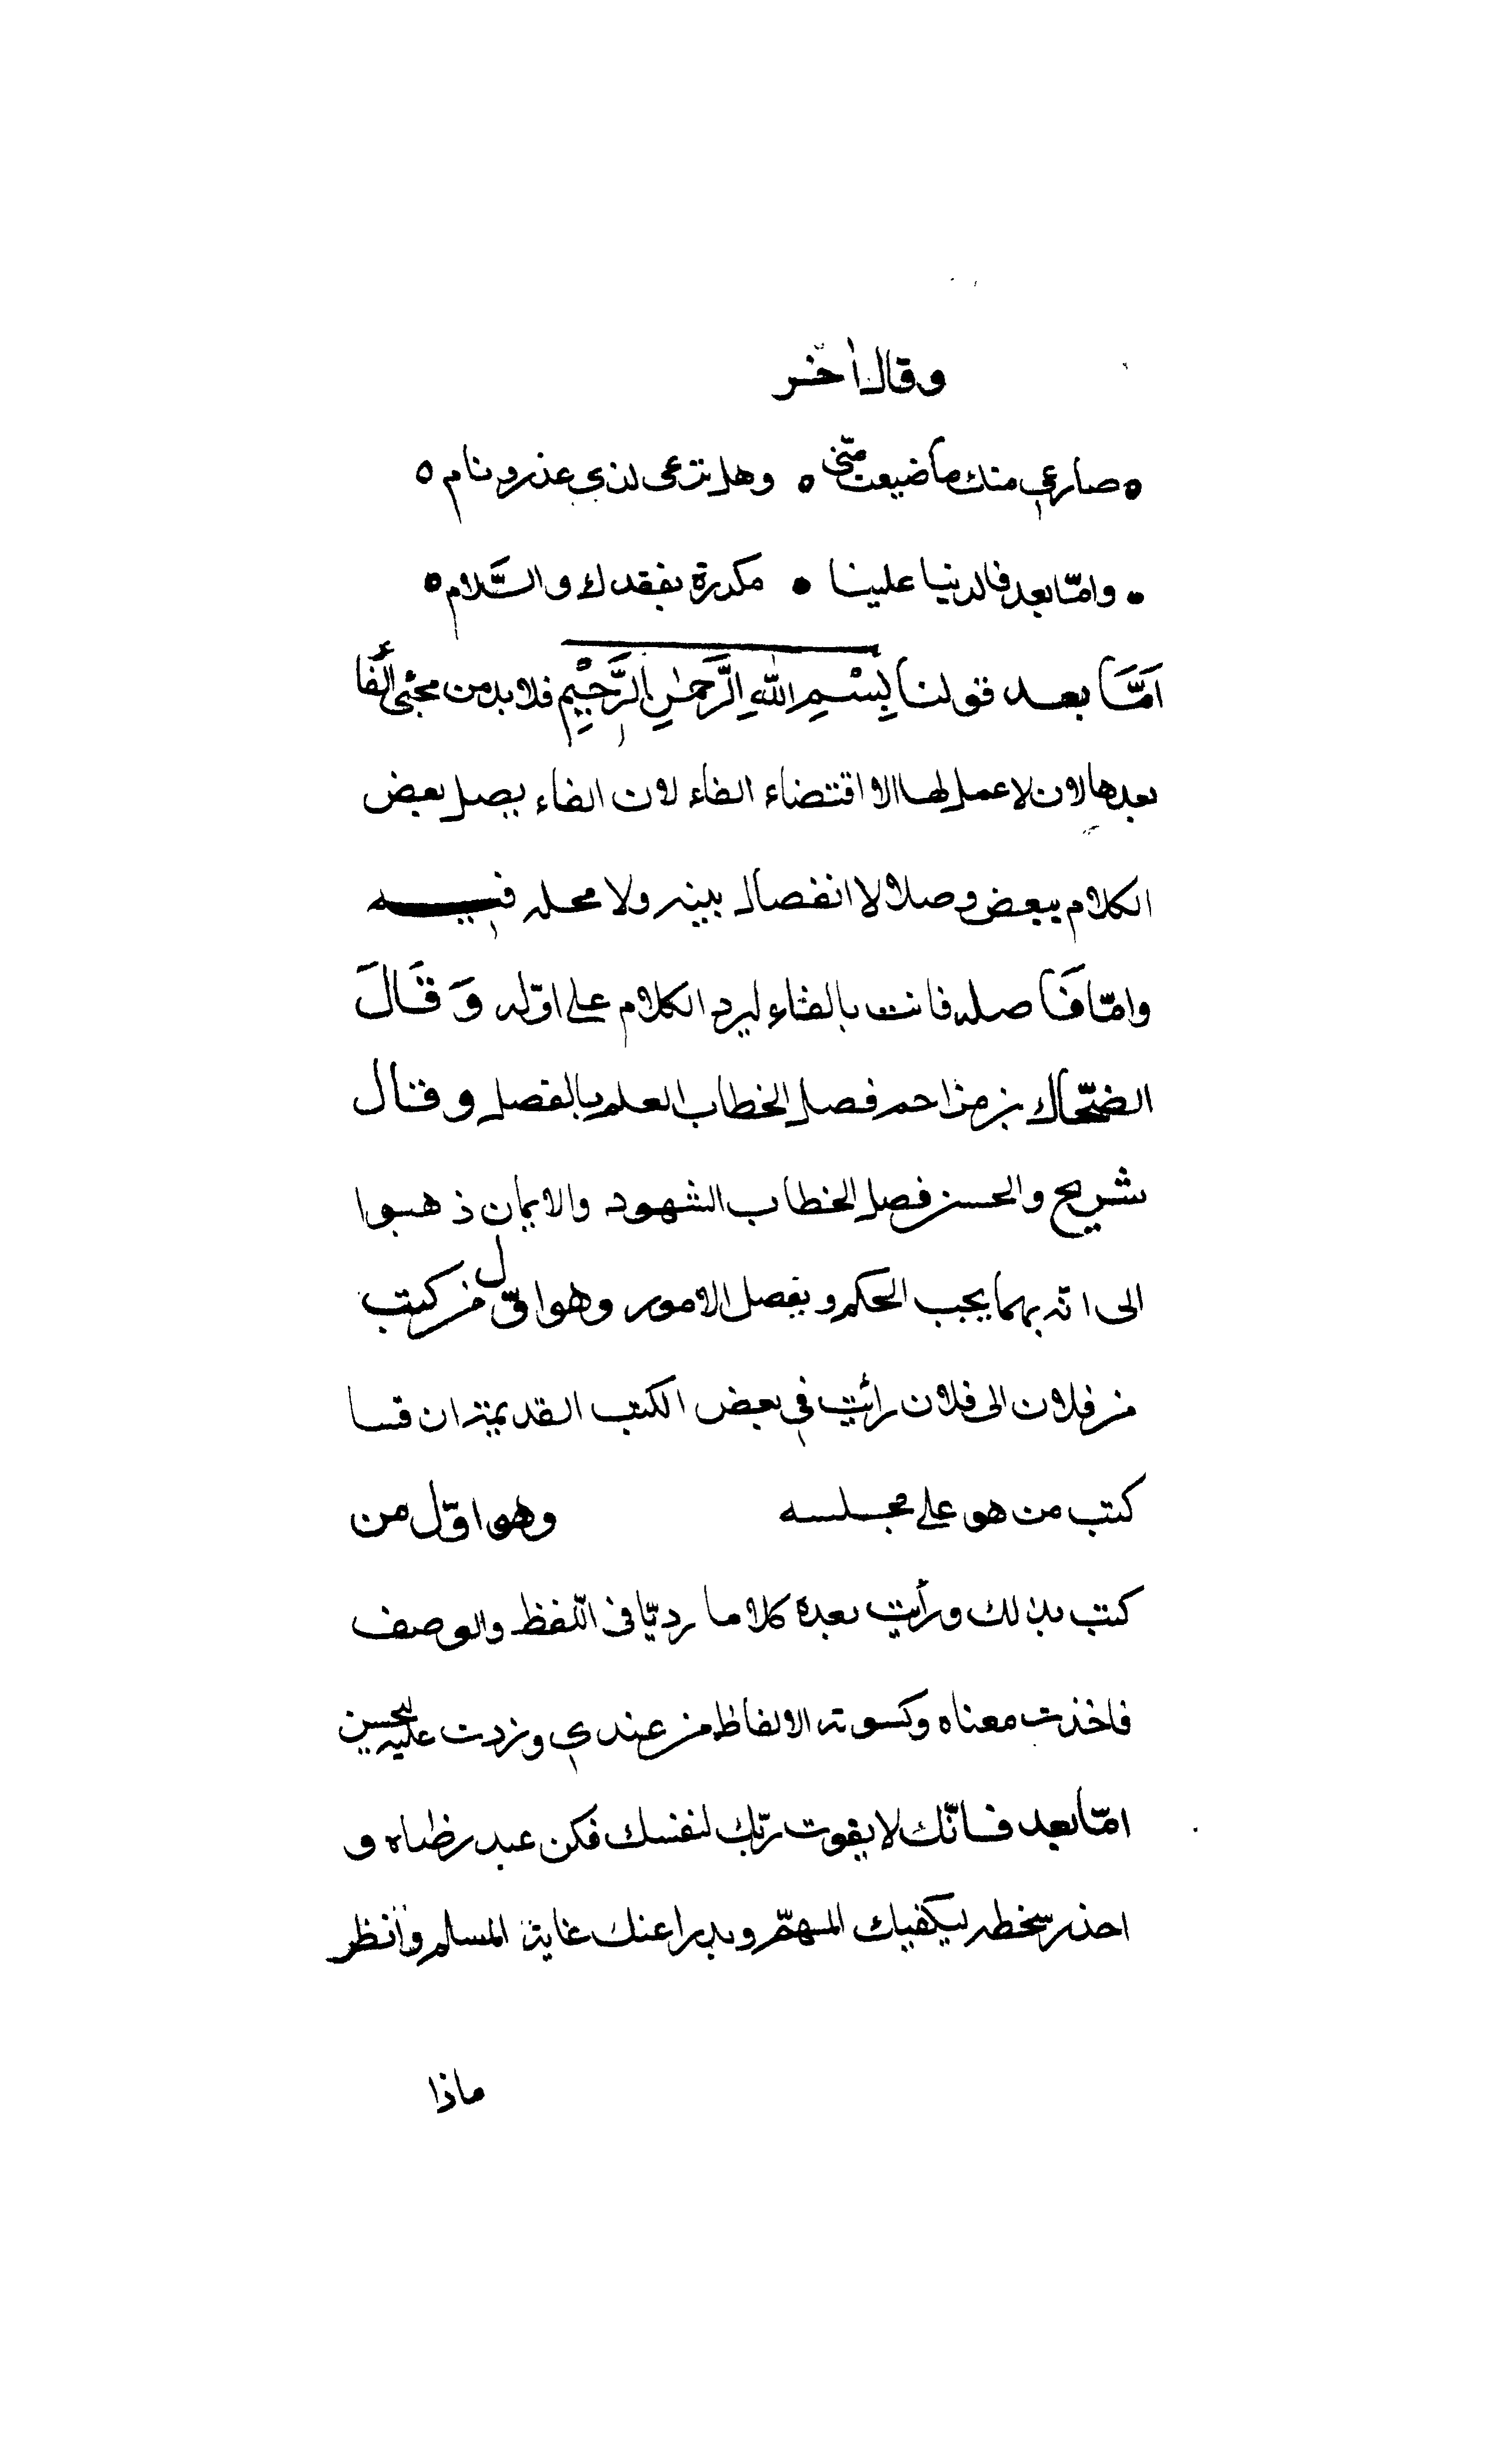 وقال اخر
صارعي منك ما ضيعت مني ٥ وهل ترعى لذي عذر ذمام ٥
• وامّا بعد فالدنيا علينا • مكدرة بفقدك والسَّلام ٥
اَمَّا بعد قولنا بِسْمِ اللهِ الرَّحمٰنِ الرَّحِيْمِ فلا بد من مجئ الفاء
بعدها لان لا عمل لها الا اقتضاء الفاء لان الفاء يصل بعض
الكلام ببعض وصلا لا انفصال بينه ولا محله فيه
وامّا فَاصله فانت بالفاء ليرد الكلام على اوّله وَقَالَ
الضحّاك بن مزاحم فصل الخطاب العلم بالفصل وقال
شريح والحسن فصل الخطاب الشهود والايمان ذهبوا
الى انه بهما يجب الحكم ويفصل الامور وهو اوّل من كتب
من فلان الى فلان رأيت في بعض الكتب القديمة ان قسا
كتب من هو على مجلسه وهو اوّل من
كتب بذلك ورأيت بعده كلاما رديّا في اللّفظ والوصف
فاخذت معناه وكسوته الالفاظ من عندي وزدت عليه ليحسن
امّا بعد فانّك لا يفوت ربّك لنفسك فكن عبد رضاه و
احذر سخطه ليكفيك المهمّ ويدرا عنك غاية المسلم وانظر
ماذا